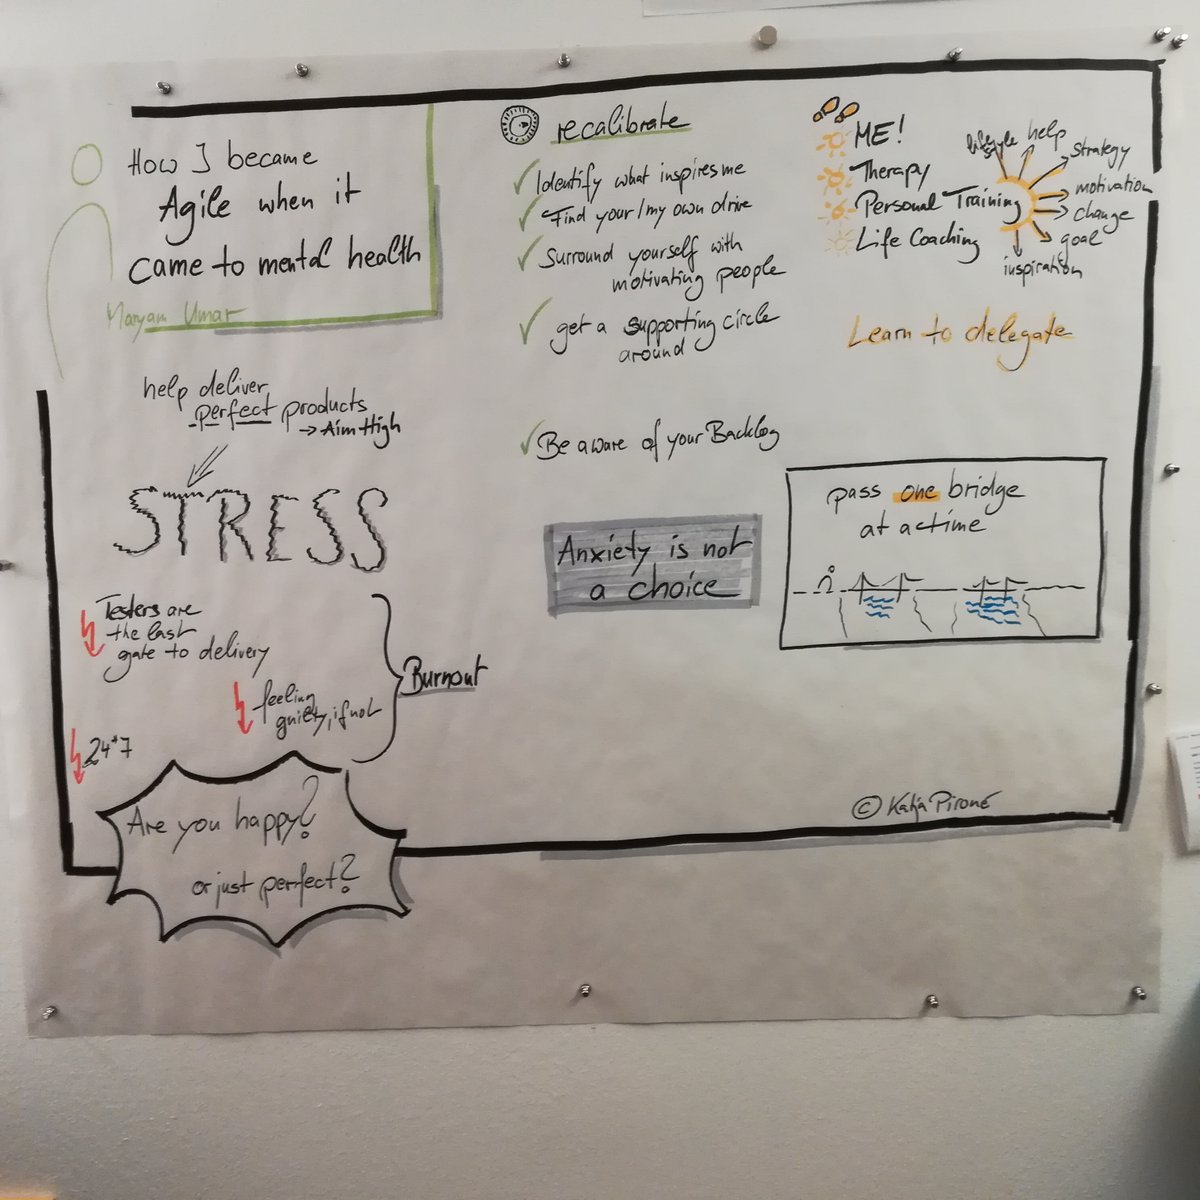 How I became
Agile when it
came to mental health
Maryam Umar
help deliver
perfect products
→ Aim High
STRESS
Testers are
the last
gate to delivery
feeling
guilty, if not
24*7
Burnout
Are you happy?
or just perfect?
recalibrate
Identify what inspires me
Find your/my own drive
Surround yourself with
motivating people
get a supporting circle
around
Be aware of your Backlog
Anxiety is not
a choice
ME!
Therapy
Personal Training
Life Coaching
lifestyle
help
strategy
motivation
change
goal
inspiration
Learn to delegate
pass one bridge
at a time
© Katja Pironé